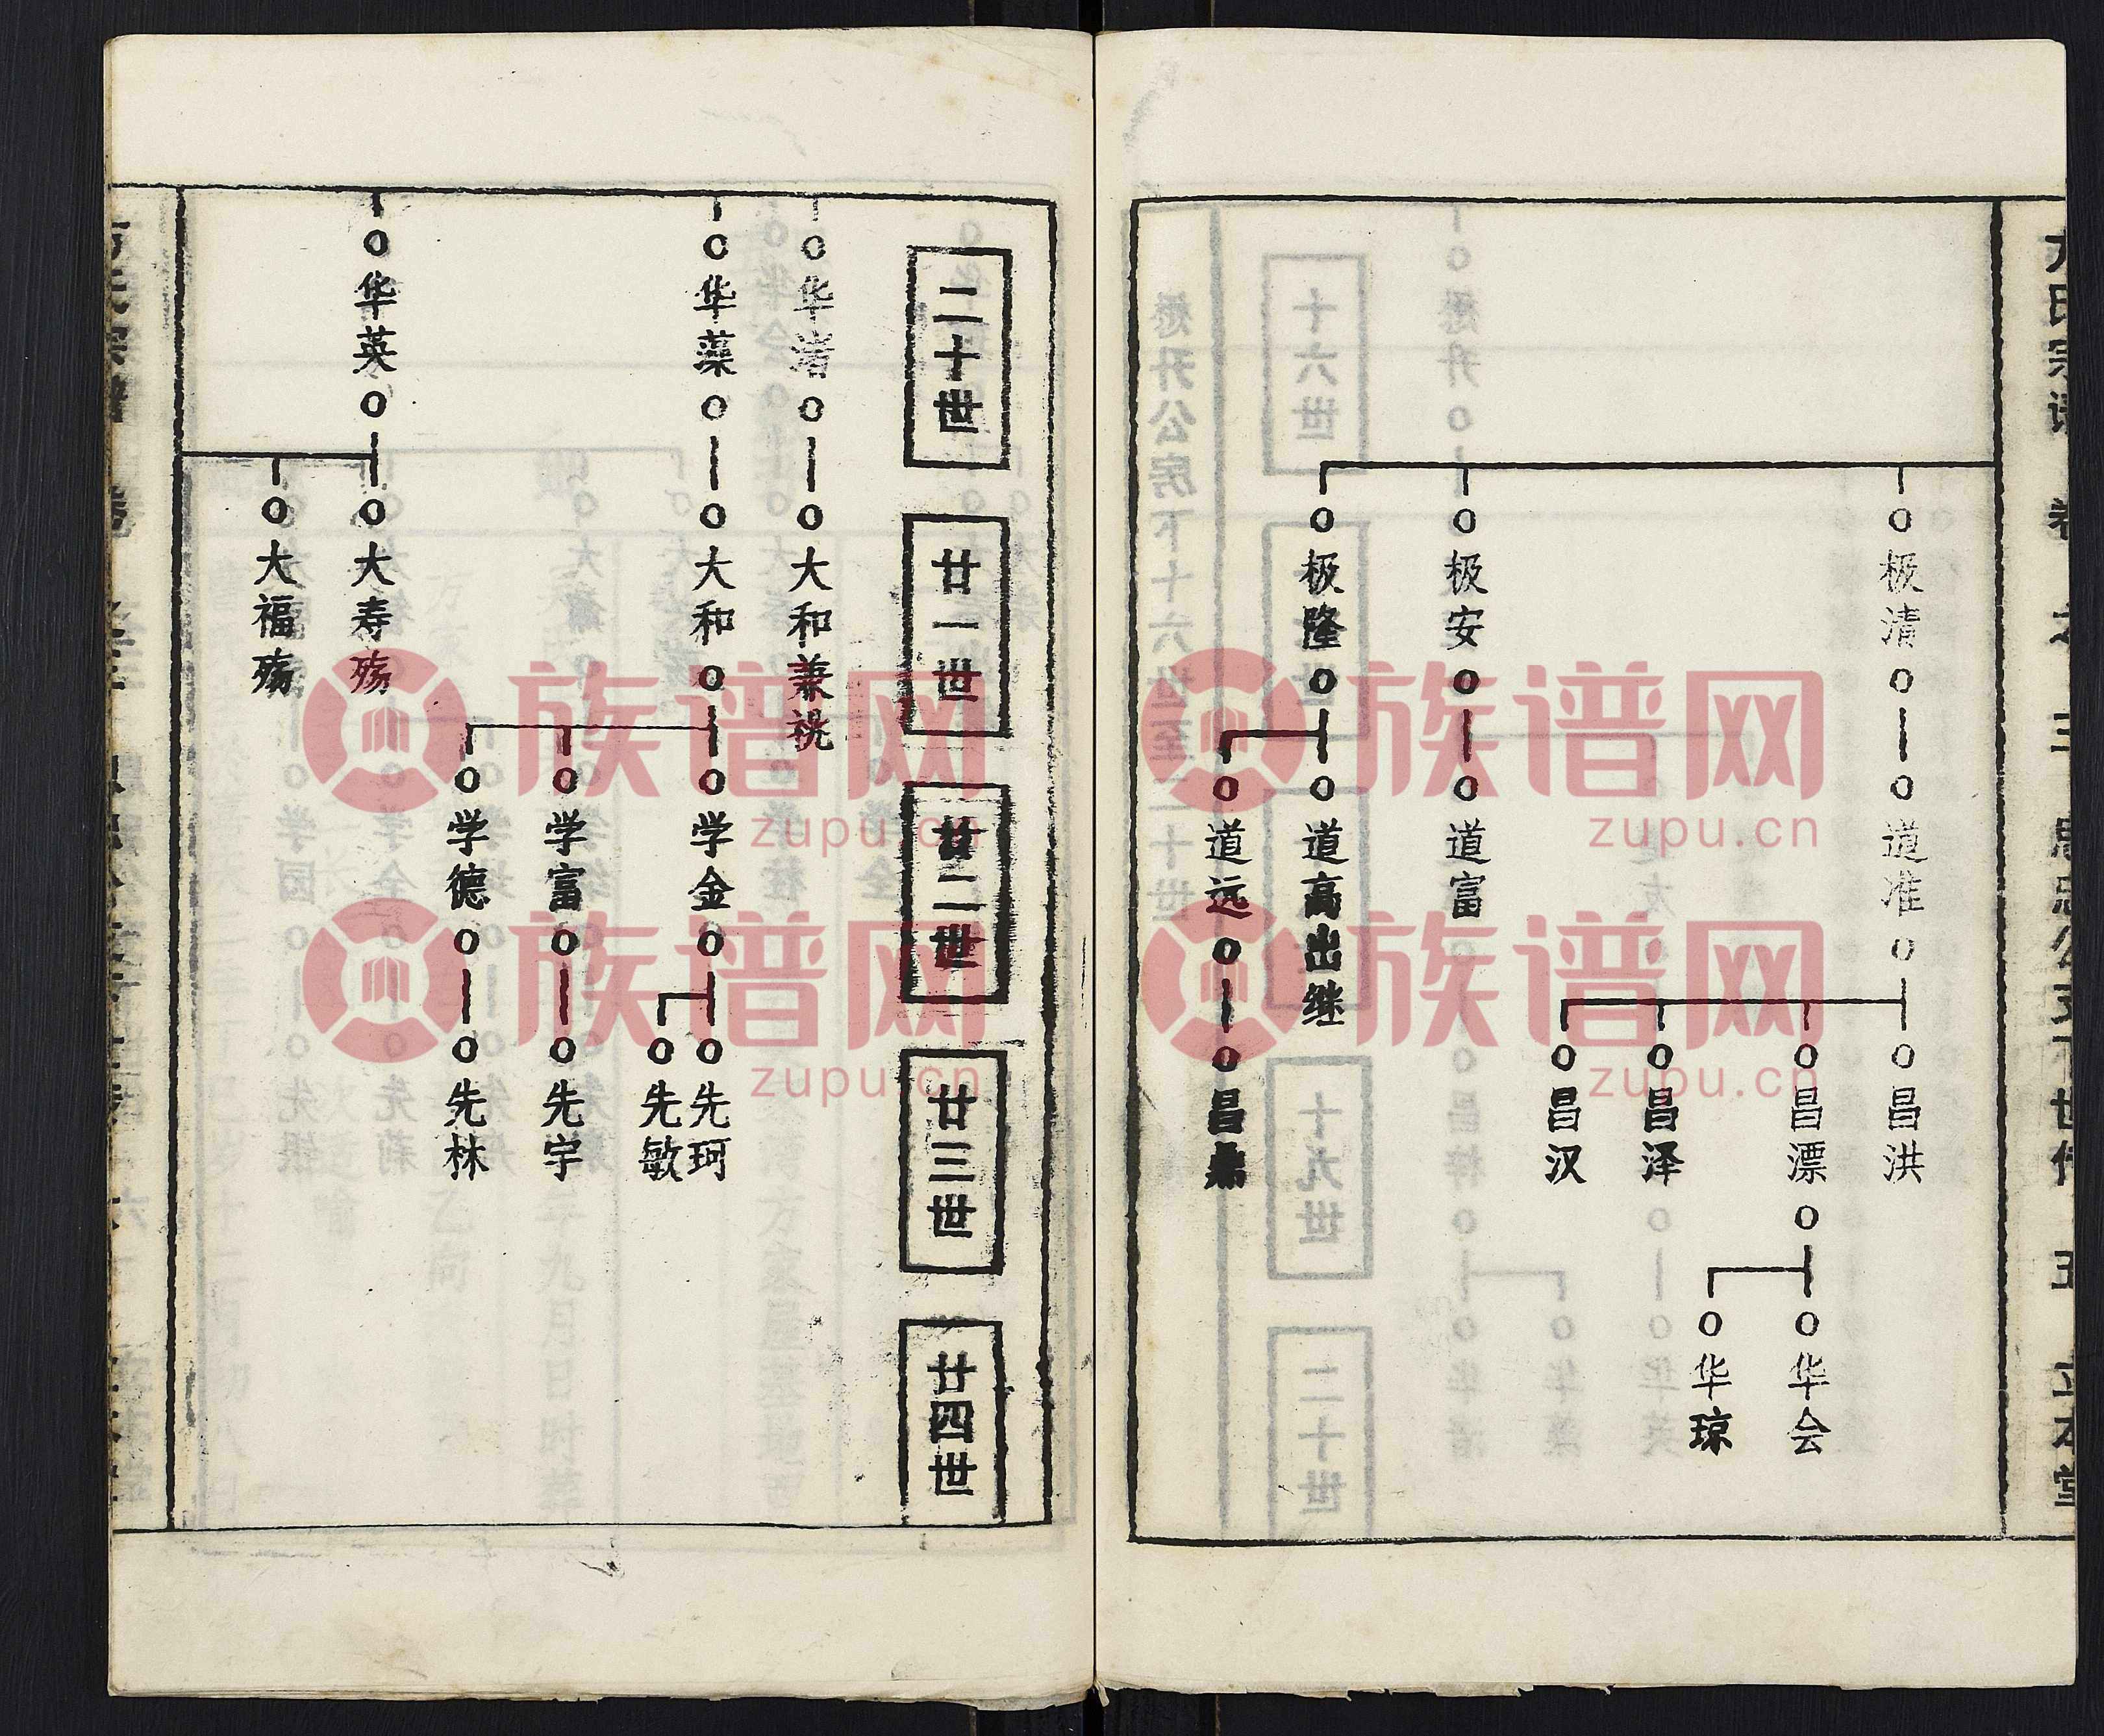 极清
道准
昌洪
昌漂
华会
华琼
昌泽
昌汉
极安
道富
极隆
道高出继
道远
昌
二十世
廿一世
廿二世
廿三世
廿四世
华
大和兼祧
华藻
大和
学金
先珂
先敏
学富
先宇
学德
先林
华英
大寿殇
大福殇
族谱网
zupu.cn
族谱网
zupu.cn
族谱网
zupu.cn
族谱网
zupu.cn